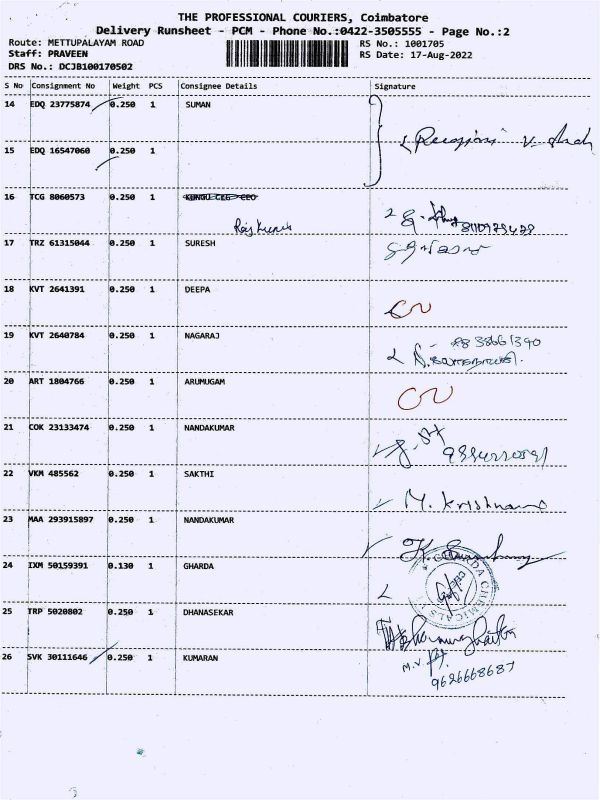 THE PROFESSIONAL COURIERS, Coimbatore
Delivery Runsheet - PCM - Phone No.:0422-3505555 - Page No.:2
Route: METTUPALAYAM ROAD RS No.: 1001705
Staff: PRAVEEN RS Date: 17-Aug-2022
DRS No.: DCJB100170502
S No Consignment No Weight PCS Consignee Details Signature
14 EDQ 23775874 0.250 1 SUMAN
15 EDQ 16547060 0.250 1
16 TCG 8060573 0.250 1
17 TRZ 61315044 0.250 1 SURESH
18 KVT 2641391 0.250 1 DEEPA
19 KVT 2640784 0.250 1 NAGARAJ
20 ART 1804766 0.250 1 ARUMUGAM
21 COK 23133474 0.250 1 NANDAKUMAR
22 VKM 485562 0.250 1 SAKTHI
M. Krishnan
23 MAA 293915897 0.250 1 NANDAKUMAR
24 IXM 50159391 0.130 1 GHARDA
GHARDA CHEMICALS
25 TRP 5020802 0.250 1 DHANASEKAR
26 SVK 30111646 0.250 1 KUMARAN
M.V.
9626668687